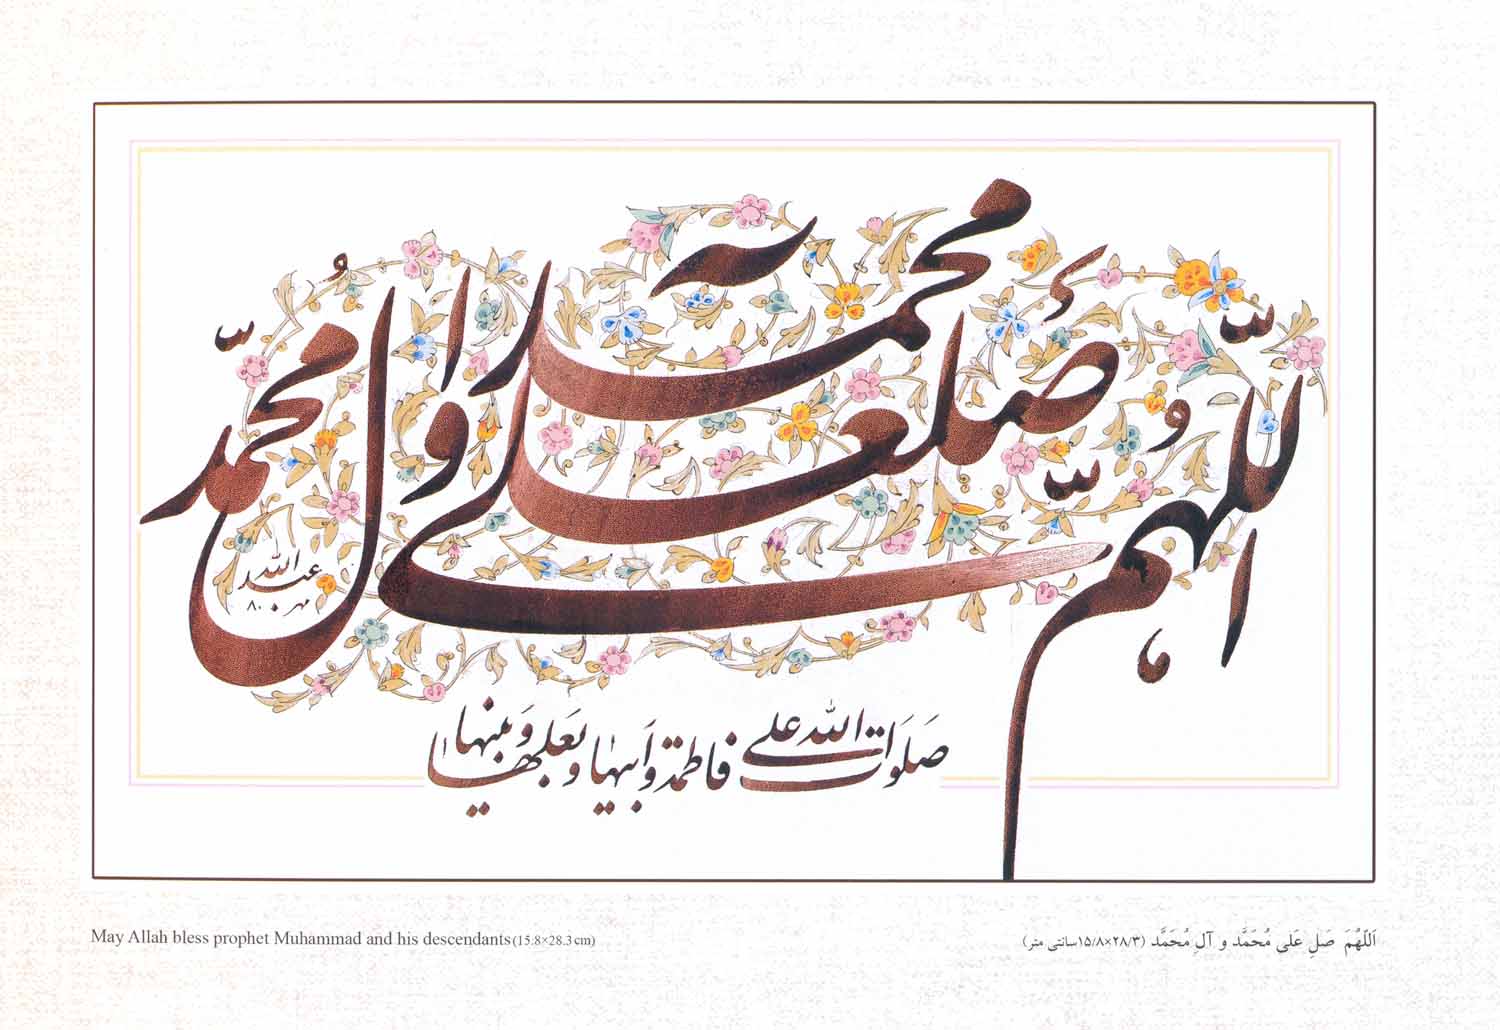 اللّهمّ صل علی محمد و آل محمّد
عبدالله
مهر ۸۰
صَلَوَات الله علی فاطمة وَ اَبیها وَ بَعلِها وَ بَنیها
May Allah bless prophet Muhammad and his descendants (15.8×28.3 cm)
اَللّهُمَ صَلِ عَلی مُحَمَّد و آلِ مُحَمَّد (۱۵/۸×۲۸/۳سانتی متر)